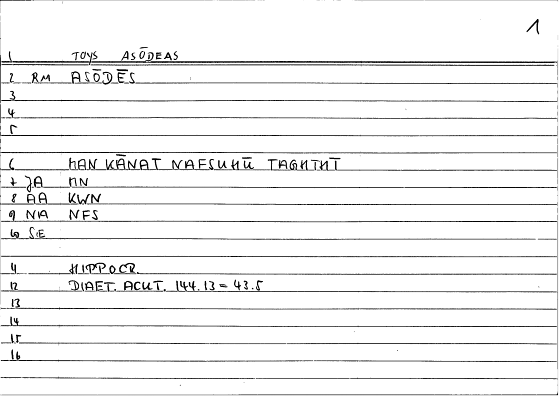 1
1 TOYS ASŌDEAS
2 RM ASŌDĒS
3
4
5
6 MAN KĀNAT NAFSUHŪ TAGHTHĪ
7 JA MN
8 AA KWN
9 NA NFS
10 SE
11 HIPPOCR.
12 DIAET. ACUT. 144.13 = 43.5
13
14
15
16